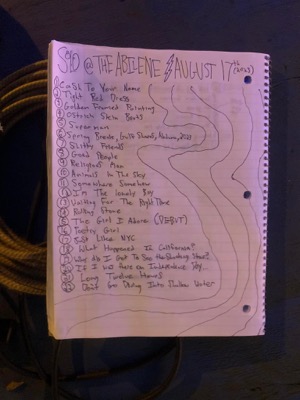 Solo @ THE ABILENE AUGUST 17th (2023)
① Cash To Your Name
② Tight Red Dress
③ Golden Framed Painting
④ Ostrich Skin Boots
⑤ Superman
⑥ Spring Break, Gulf Shores, Alabama, 2021
⑦ Slutty Friends
⑧ Good People
⑨ Religious Man
⑩ Animals In The Sky
⑪ Somewhere Somehow
⑫ I'm The Lonely Boy
⑬ Waiting For The Right Time
⑭ Rolling Stone
⑮ The Girl I Adore (DEBUT)
⑯ Poetry Girl
⑰ Just Like NYC
⑱ What Happened In California?
⑲ Why did I Get To See the Shooting Stars?
⑳ If I was there on Independence Day...
㉑ Long Twelve Hours
㉒ Don't Go Diving Into Shallow Water